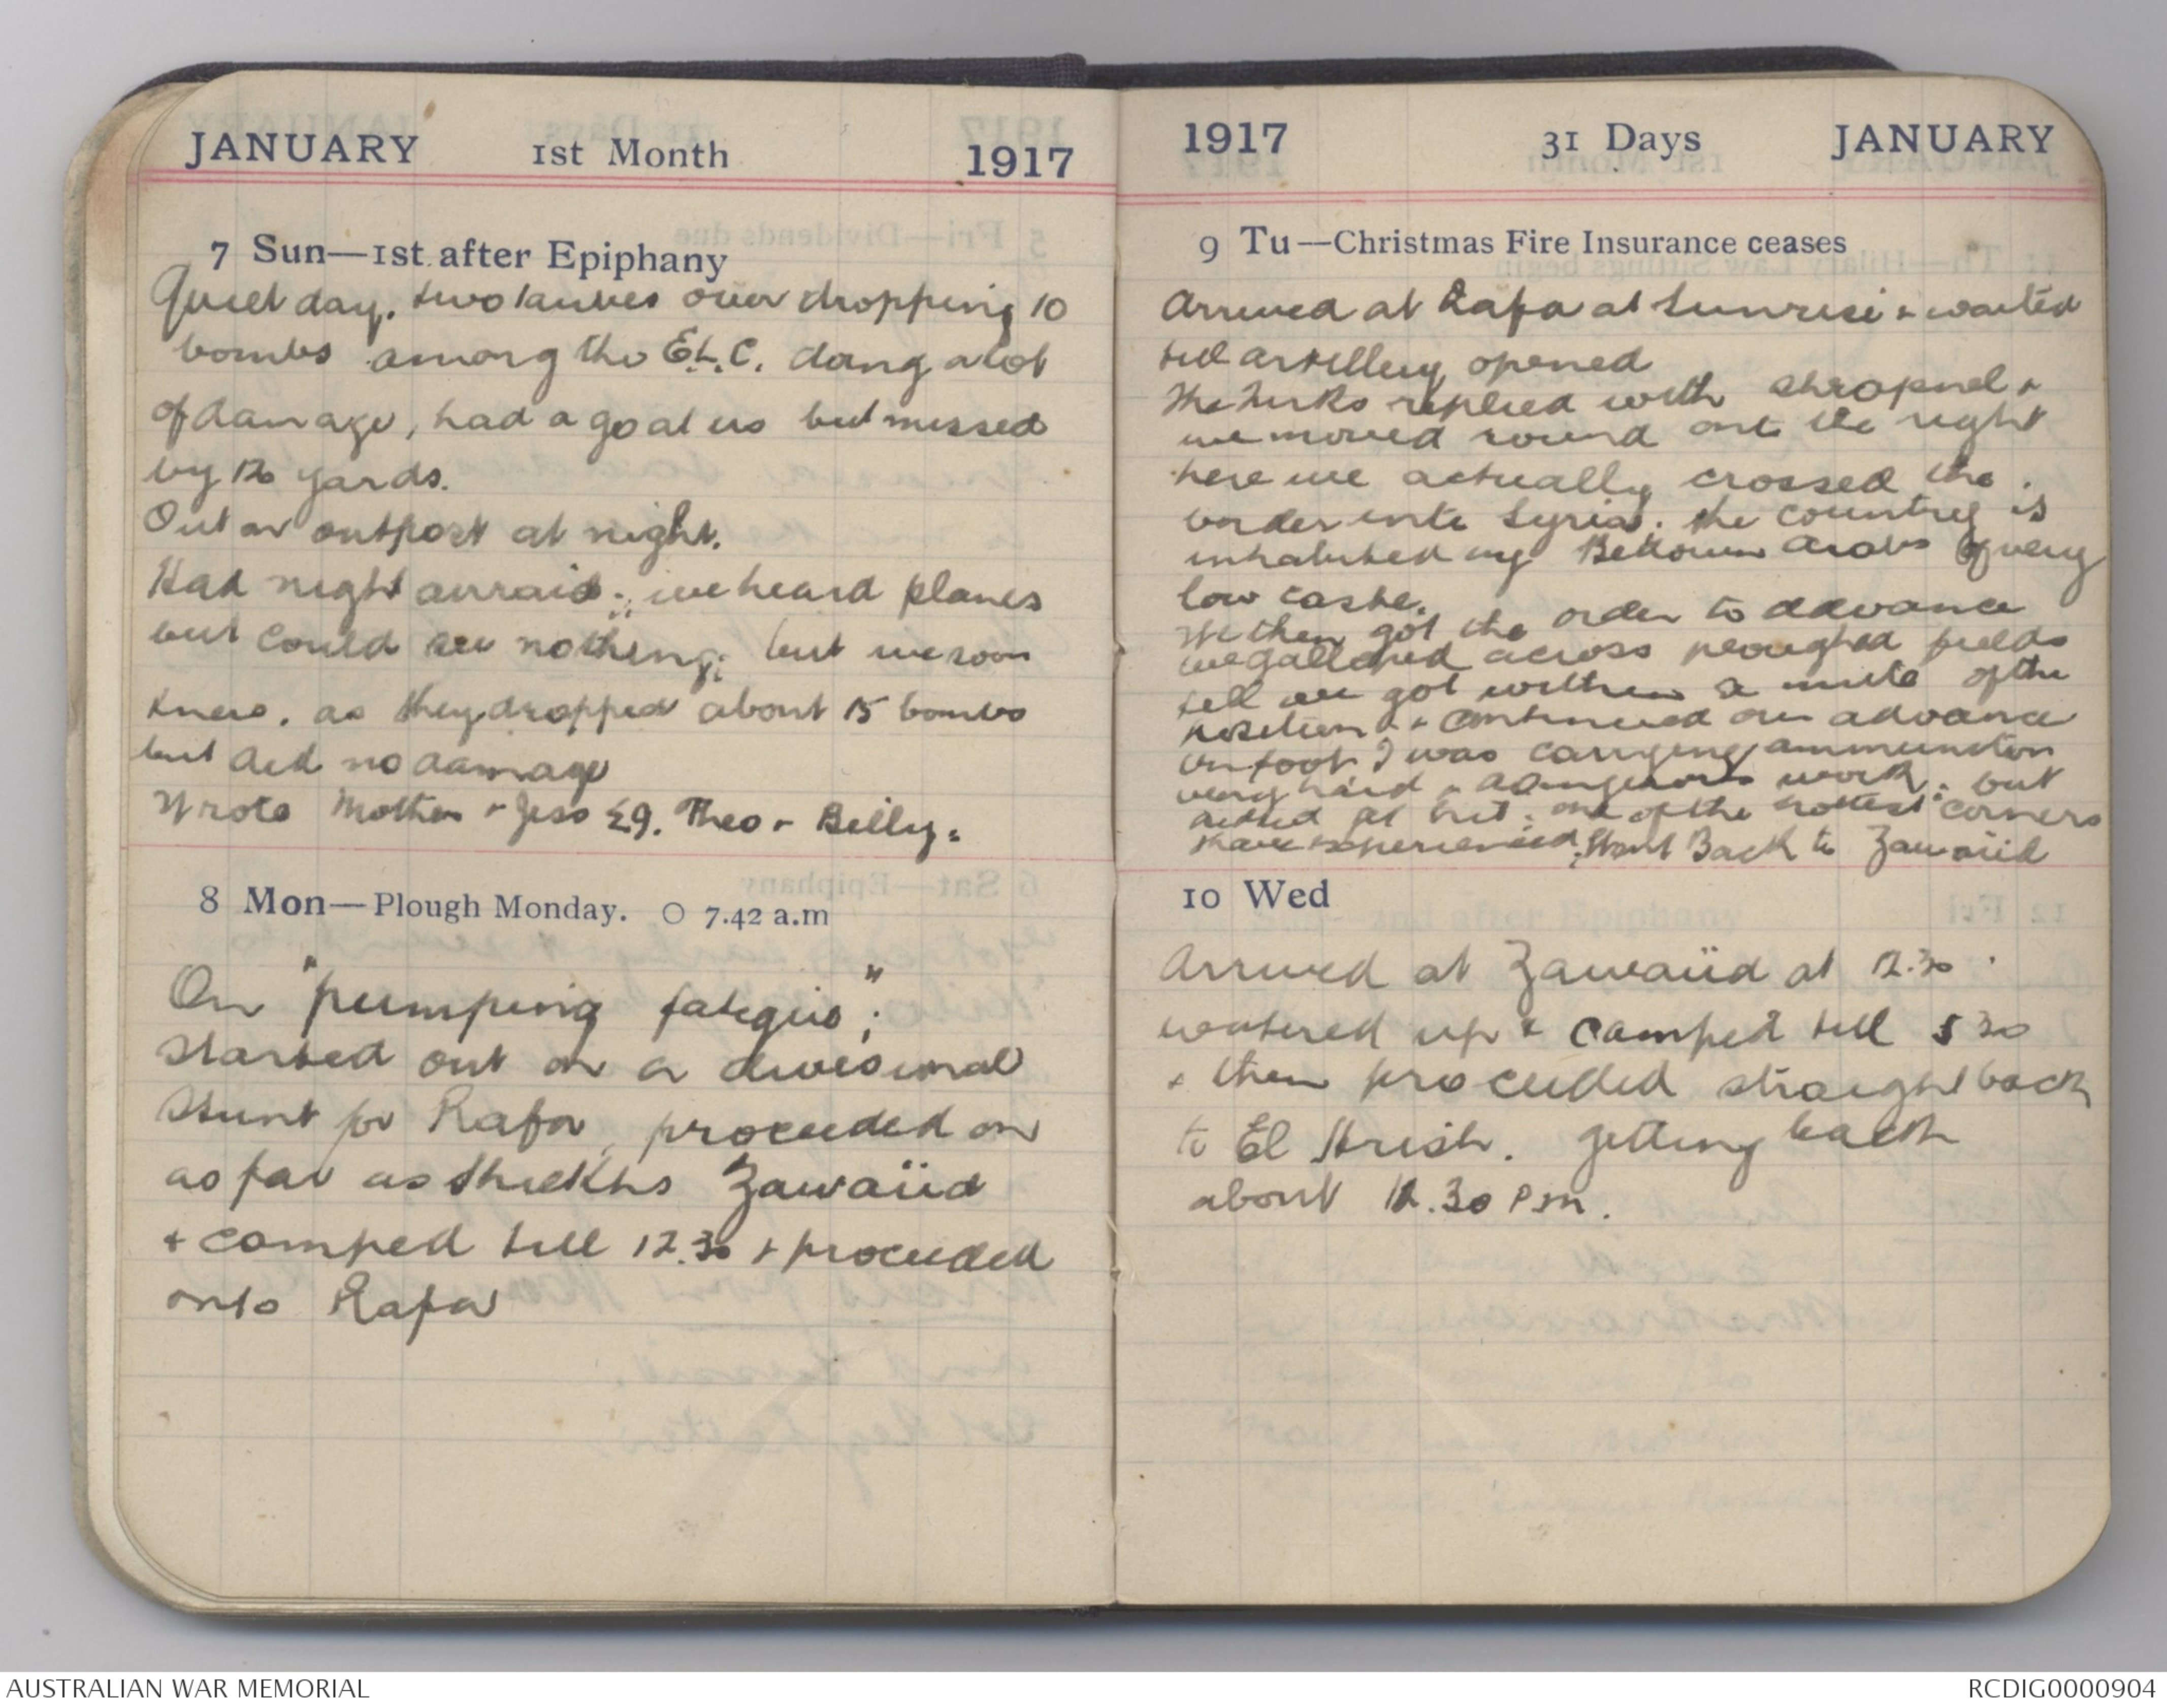 JANUARY 1st Month 1917
7 Sun—1st after Epiphany
Quiet day. two taubes over dropping 10
bombs among the E.L.C. doing a lot
of damage, had a go at us but missed
by 12 yards.
Out on outpost at night.
Had night airraid; we heard planes
but could see nothing; but we soon
knew, as they dropped about 15 bombs
but did no damage
Wrote Mother + Jess 29. Theo + Billy.
8 Mon—Plough Monday. O 7.42 a.m
On "pumping fatigue";
Started out on a divisional
Stunt for Rafa, proceeded on
as far as Shiekhs Zawaiid
+ camped till 12.30 + proceeded
onto Rafa
1917 31 Days JANUARY
9 Tu—Christmas Fire Insurance ceases
Arrived at Rafa at Sunrise + waited
till artillery opened
The Turks replied with shrapnel +
we moved round onto the right
here we actually crossed the
border into Syria. the country is
inhabited by Bedouin Arabs of very
low caste.
We then got the order to advance
we galloped across ploughed fields
till we got within a mile of the
position + continued our advance
on foot I was carrying ammunition
very hard + dangerous work. but
one of the hottest corners
I have experienced. Went Back to Zawaiid
10 Wed
Arrived at Zawaiid at 12.30
watered up + camped till 5 30
+ then proceeded straight back
to El Arish. getting back
about 12.30 P.m.
AUSTRALIAN WAR MEMORIAL
RCDIG0000904